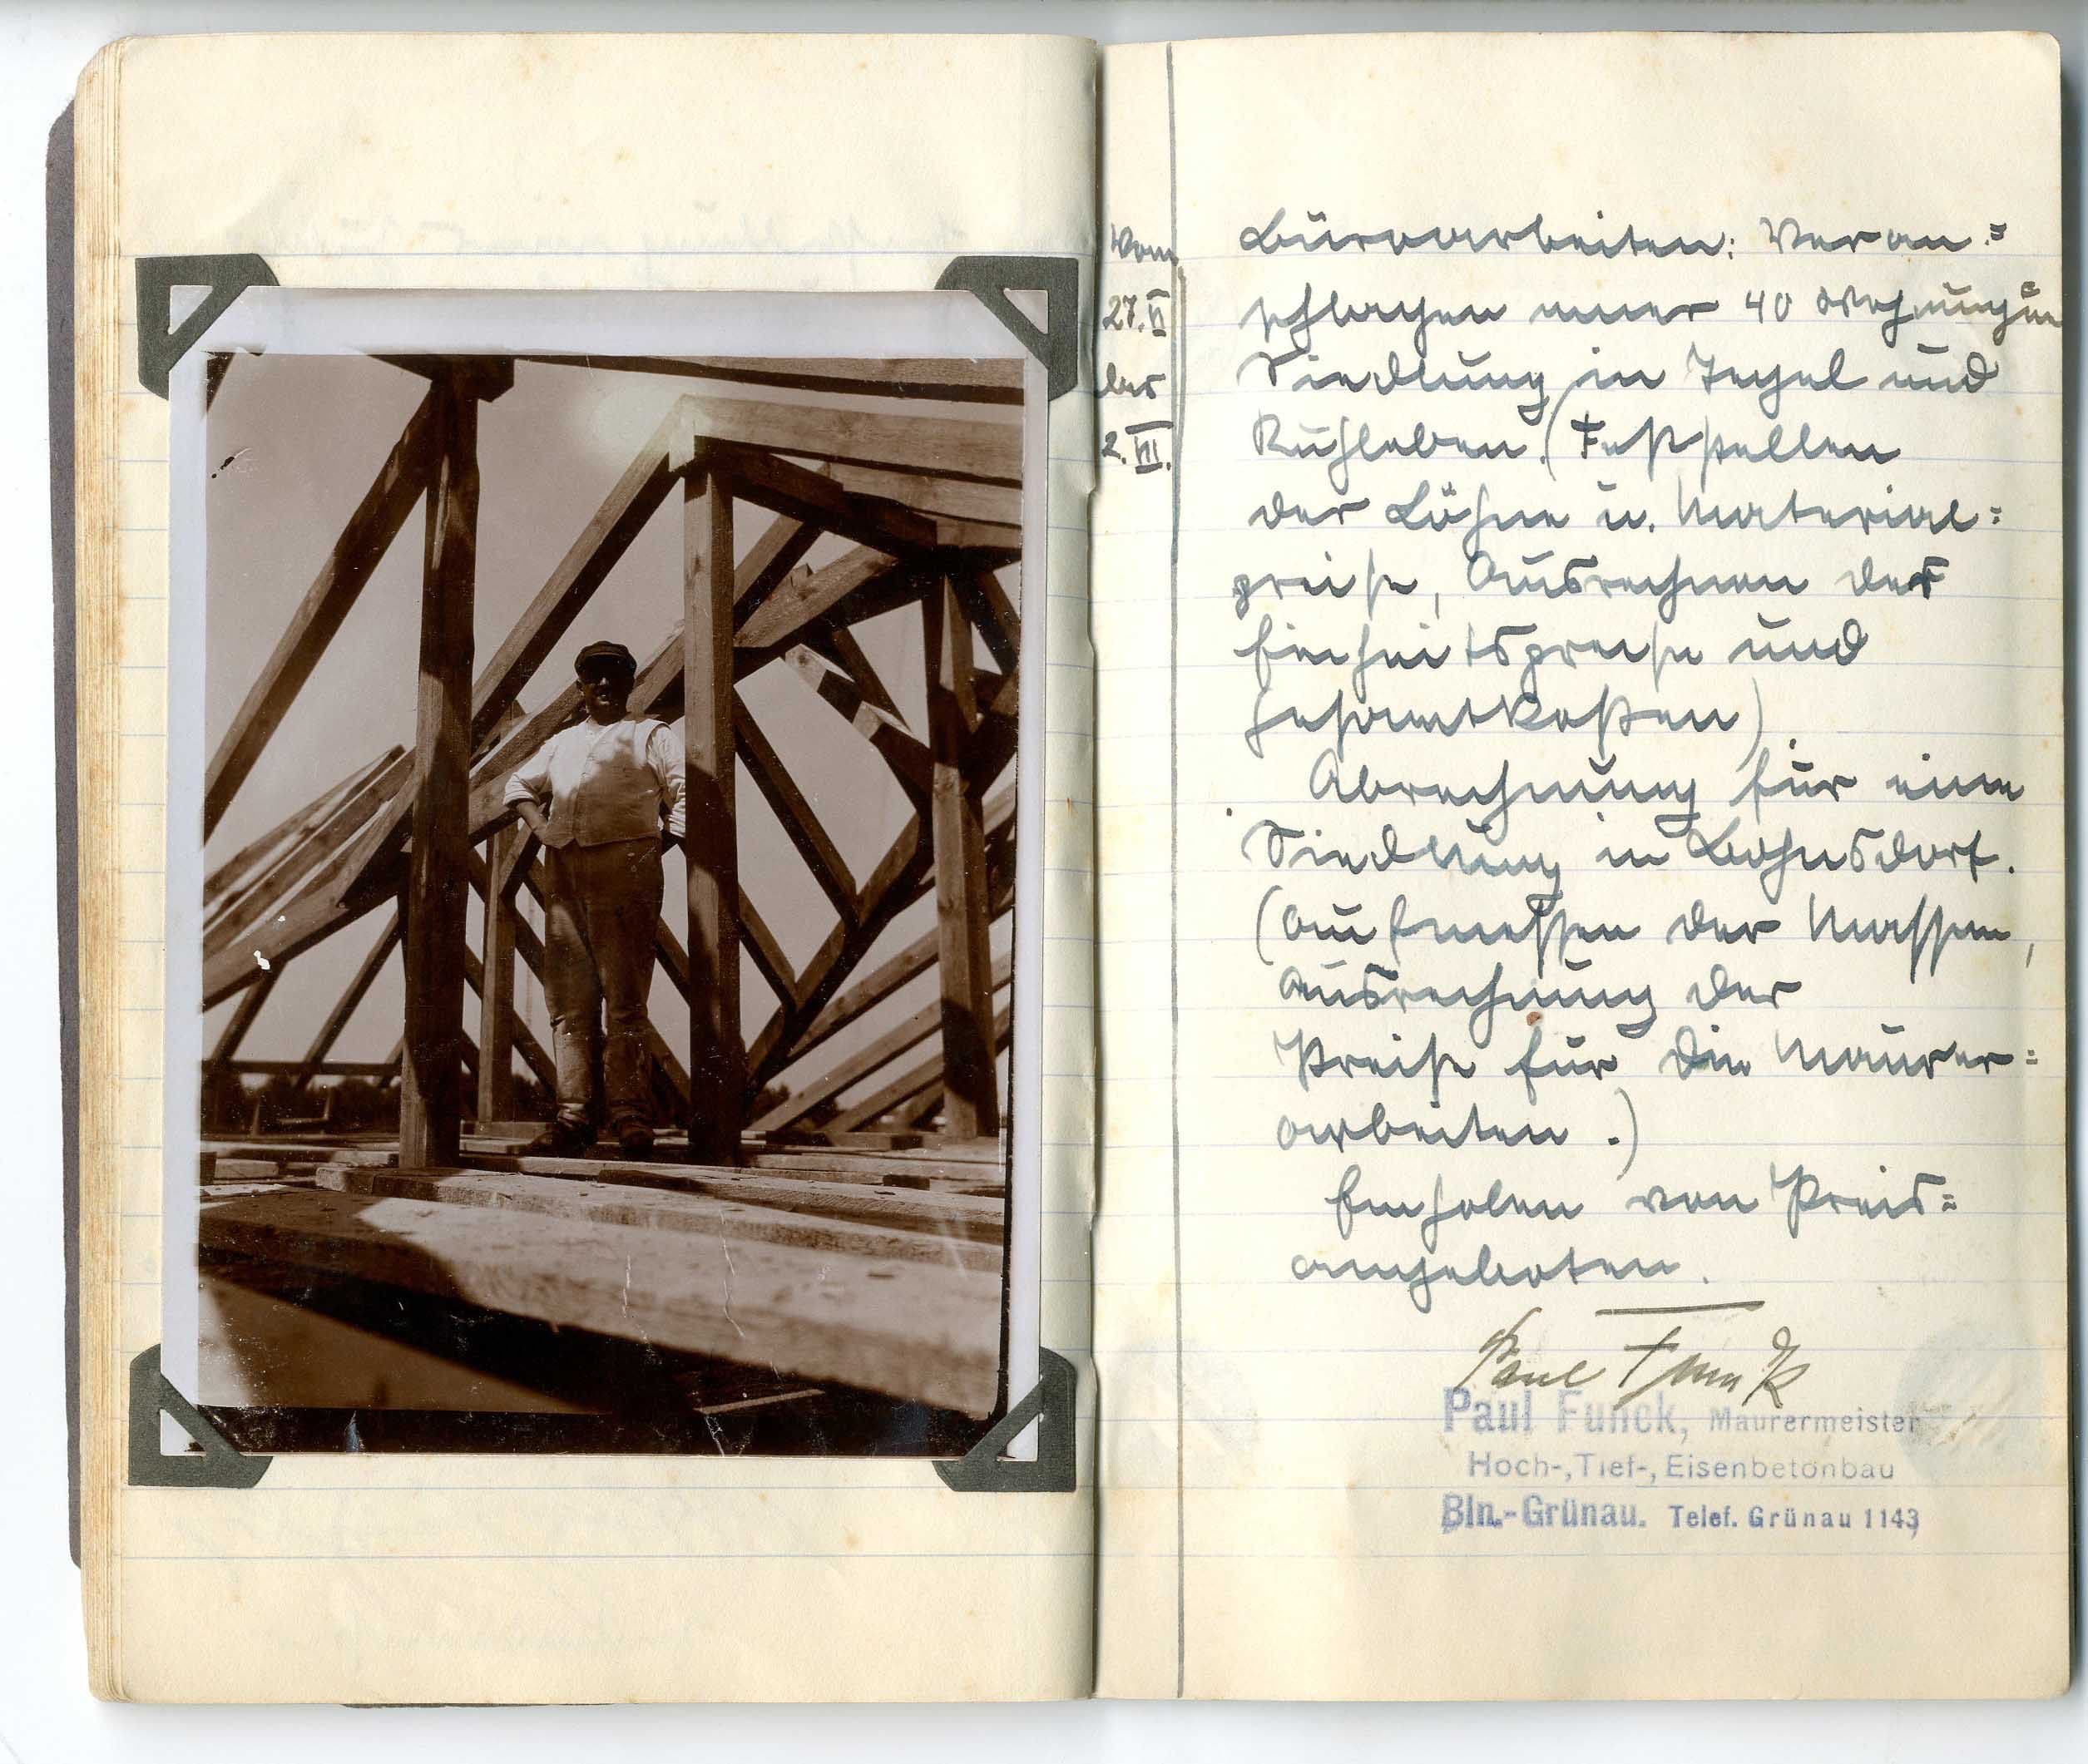 Vom
27. VI
bis
2. VII.
Büroarbeiten: Veran=
schlagen einer 40 Wohnungen=
Siedlung in Tegel und
Ruhleben. (Feststellen
der Löhne u. Material=
preise, Ausrechnen der
Einheitspreise und
Gesamtkosten)
Abrechnung für eine
Siedlung in Bohnsdorf.
(Aufmessen der Massen,
Ausrechnung der
Preise für die Maurer=
arbeiten.)
Einholen von Preis=
angeboten.
Paul Funck
Paul Funck, Maurermeister
Hoch-, Tief-, Eisenbetonbau
Bln.-Grünau. Telef. Grünau 1143